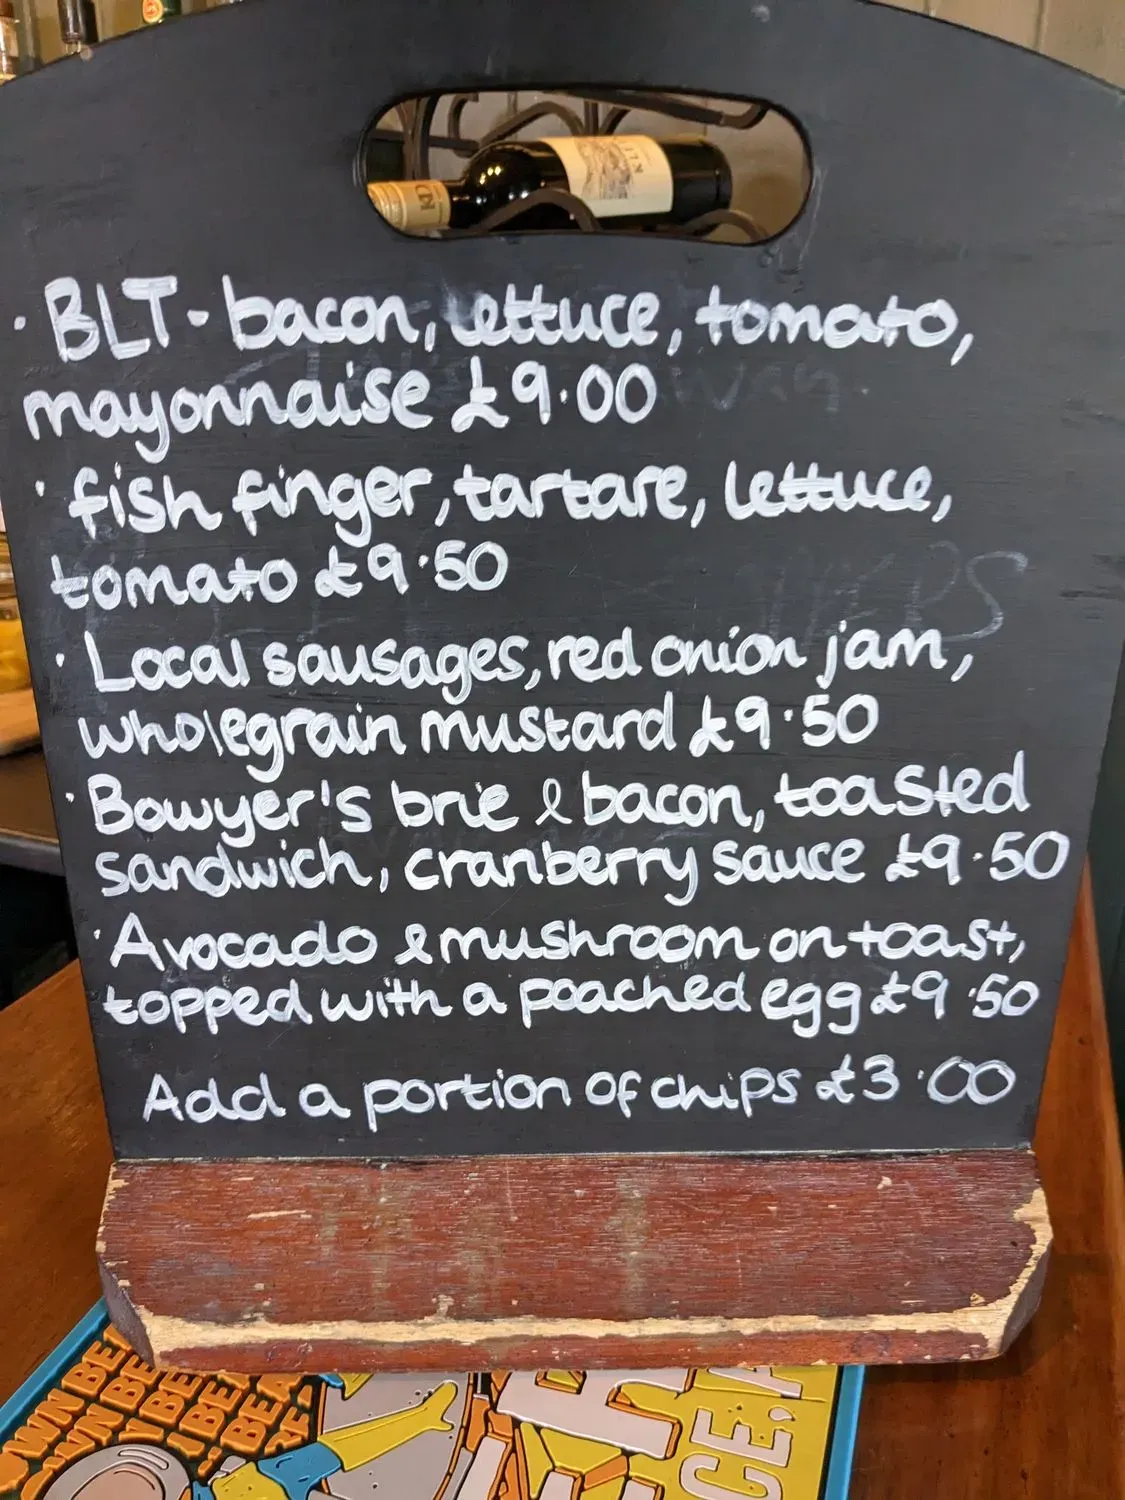 · BLT - bacon, lettuce, tomato,
mayonnaise £9.00
· fish finger, tartare, lettuce,
tomato £9.50
· Local sausages, red onion jam,
wholegrain mustard £9.50
· Bowyer's brie & bacon, toasted
sandwich, cranberry sauce £9.50
· Avocado & mushroom on toast,
topped with a poached egg £9.50
Add a portion of chips £3.00